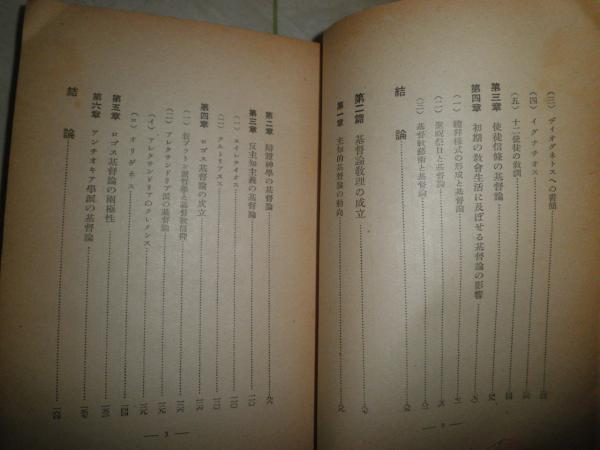 (三) ディオグネトスへの書簡
(四) イグナチオス
(五) 十二使徒の教訓
第三章 使徒信條の基督論
第四章 初期の教會生活に及ぼせる基督論の影響
(一) 禮拜樣式の形成と基督論
(二) 聖祝祭日と基督論
(三) 基督教藝術と基督論
結論
第二篇 基督論教理の成立
第一章 主知的基督論の動向
第二章 辯證神學の基督論
第三章 反主知主義の基督論
(一) エイレナイオス
(二) テルトリアヌス
第四章 ロゴス基督論の成立
(一) 新プラトン派哲學と基督教信仰
(二) アレクサンドリア派の基督論
(イ) アレクサンドリアのクレメンス
(ロ) オリゲネス
第五章 ロゴス基督論の兩極性
第六章 アンチオキア學派の基督論
結論
— 3 —